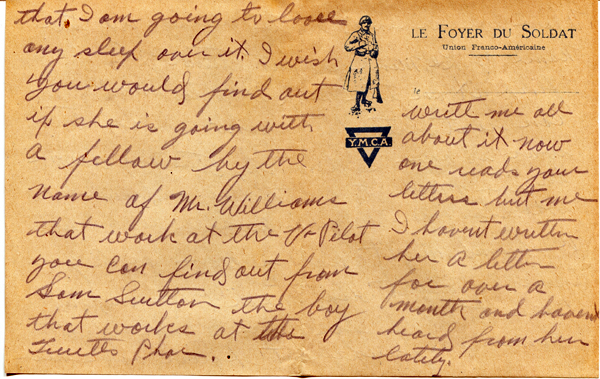 that I am going to loose
any sleep over it. I wish
you would find out
if she is going with
a fellow by the
name of Mr. Williams
that work at the V-Pilot
you can find out from
Sam Sutton the boy
that works at the
Phar.
LE FOYER DU SOLDAT
Union Franco-Américaine
le
Y.M.C.A
write me all
about it now
one reads your
letters but me
I havent written
her a letter
for over a
month and havent
heard from her
lately.